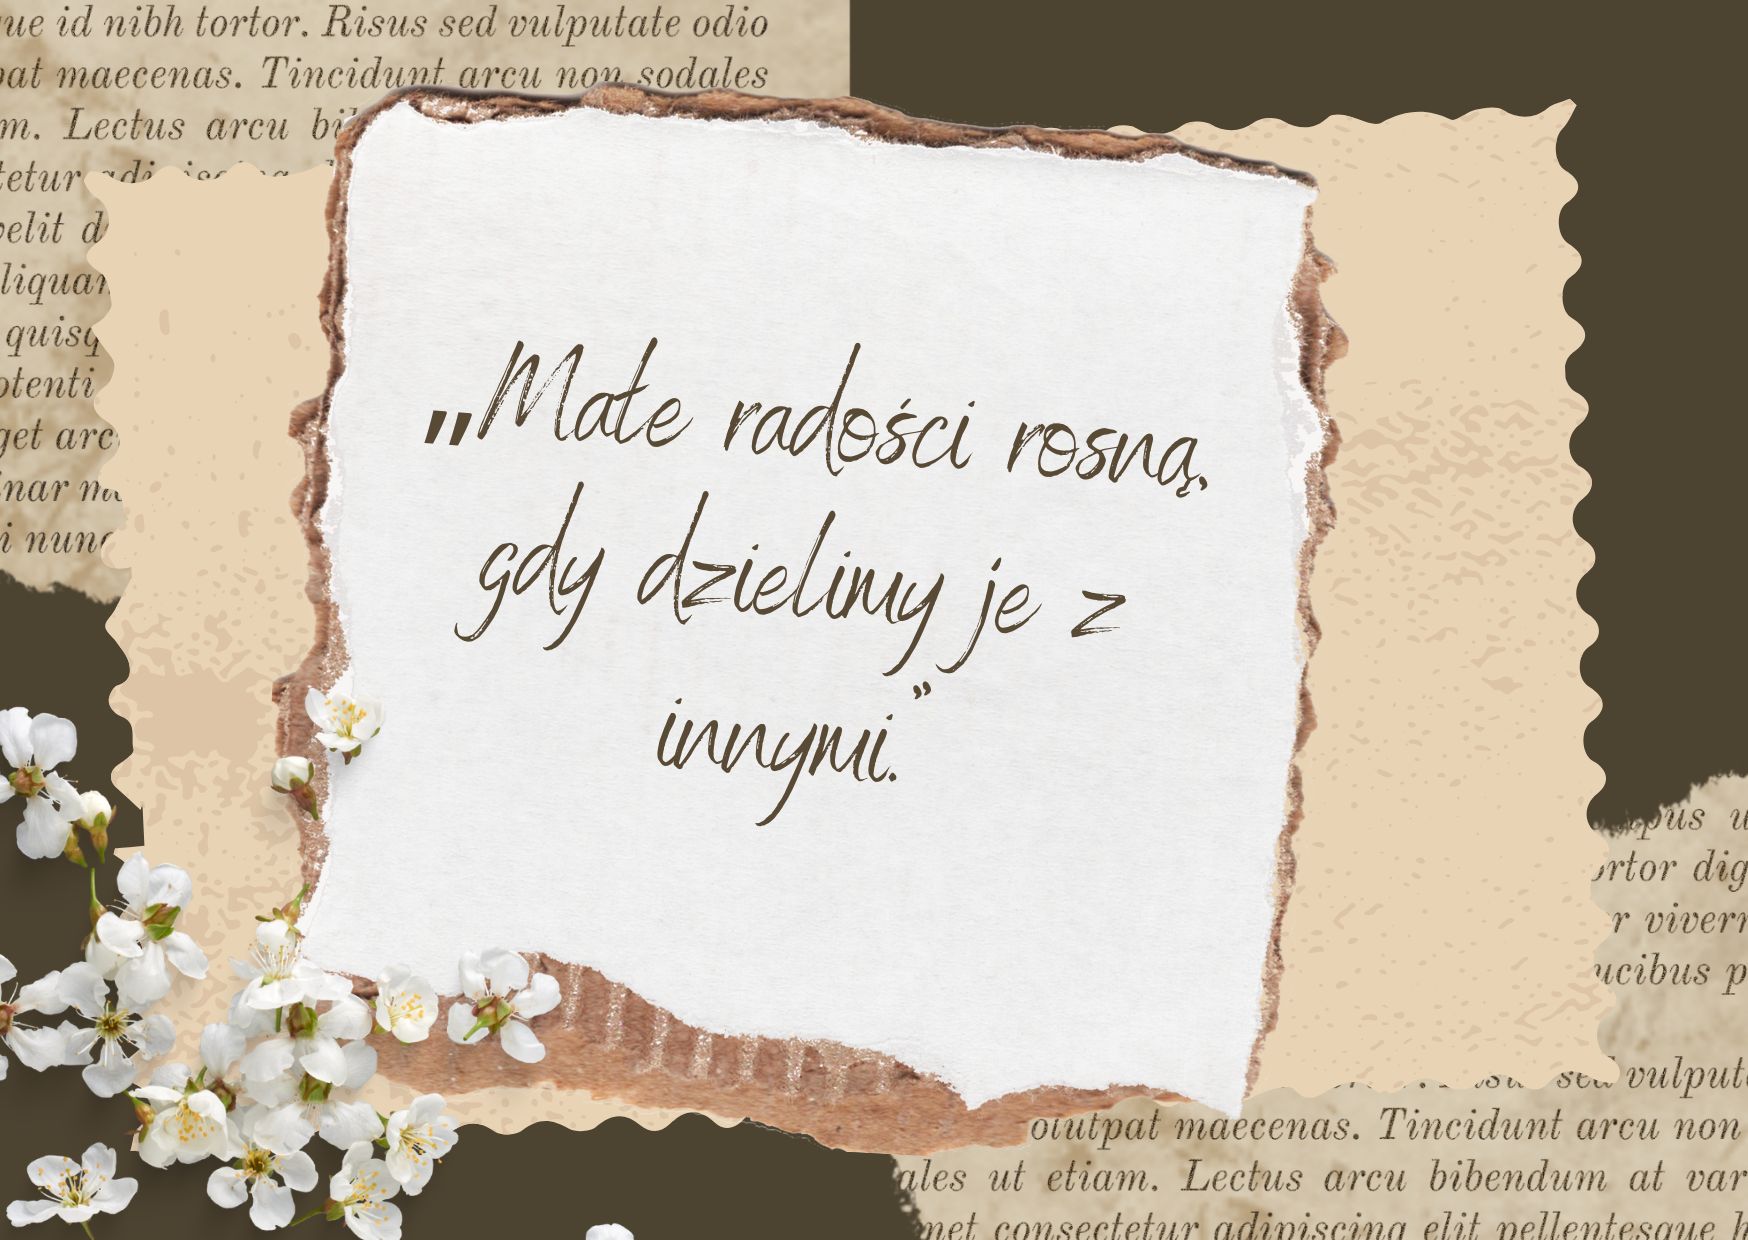 ue id nibh tortor. Risus sed vulputate odio
at maecenas. Tincidunt arcu non sodales
m. Lectus arcu
tetur
velit
liquan
quisq
otenti
get arc
nar
i nunc
"Małe radości rosną,
gdy dzielimy je z
innymi.”
pus u
rtor dig
r viverr
ucibus p
sed vulput
olutpat maecenas. Tincidunt arcu non
ales ut etiam. Lectus arcu bibendum at var
met consectetur adipiscing elit pellentesque h